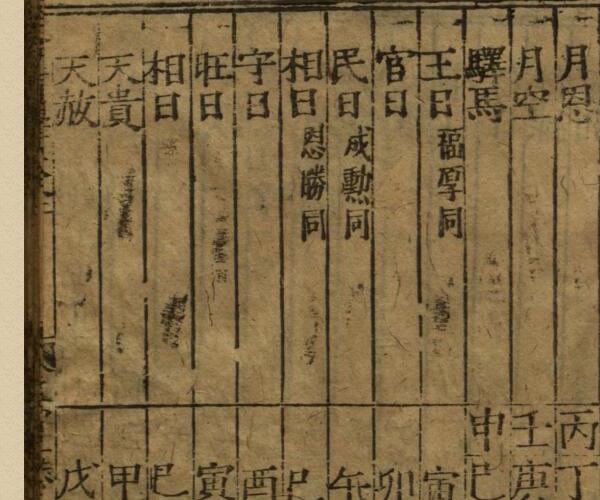 月恩 丙丁
月空 壬庚
驛馬 申巳
王日 福厚同 寅
官日 卯
民日 成勳同 午
相日 恩勝同 巳
守日 酉
旺日 寅
相日 巳
天貴 甲
天赦 戊